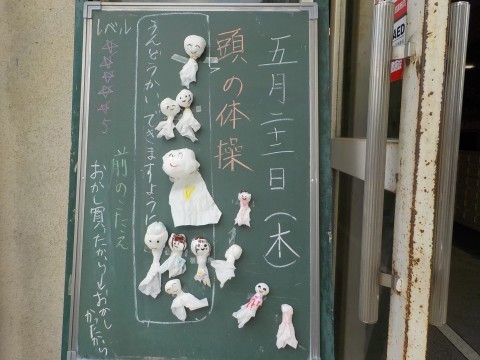 五月二十二日(木)
頭の体操
うんどうかいできますように
レベル ☆☆☆☆☆
前のこたえ
おかし買ったから→おかしかったから
AED